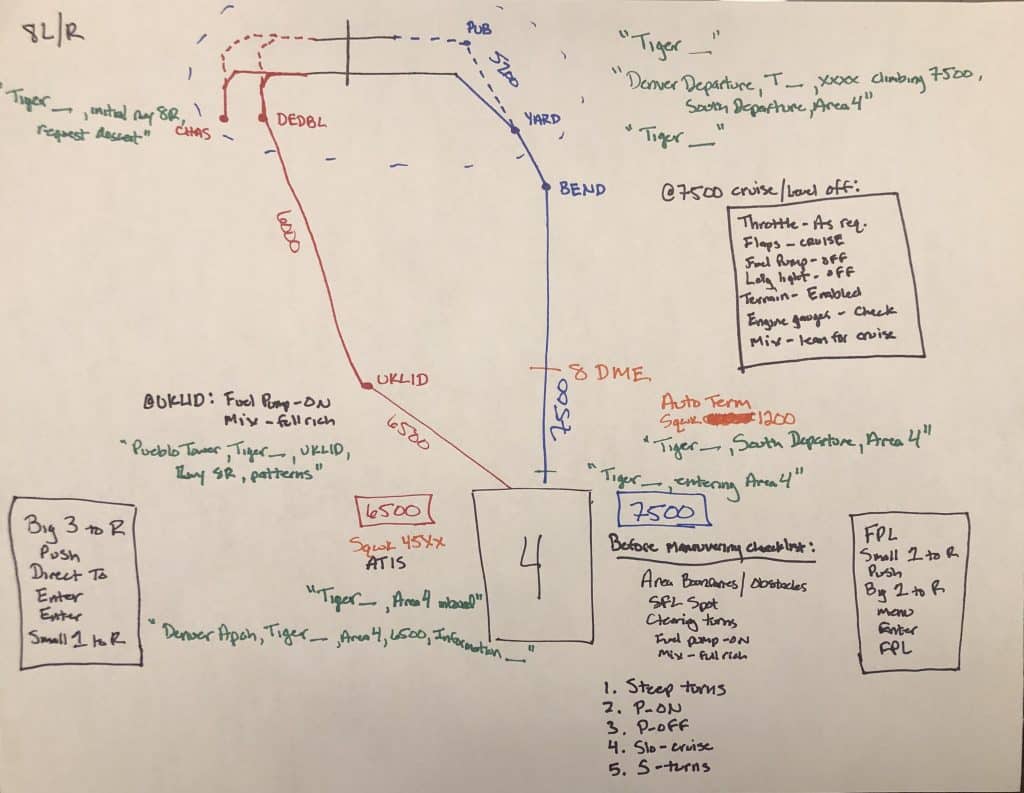 8L/R
PUB
5200
YARD
BEND
CHAS
DEDBL
"Tiger __, initial rwy 8R,
request descent"
"Tiger __"
"Denver Departure, T __, xxxx climbing 7500,
South Departure, Area 4"
"Tiger __"
@7500 cruise/level off:
Throttle - As req.
Flaps - CRUISE
Fuel Pump - OFF
Ldg light - OFF
Terrain - Enabled
Engine gauges - Check
Mix - lean for cruise
6000
UKLID
@UKLID: Fuel Pump - ON
Mix - full rich
"Pueblo Tower, Tiger __, UKLID,
Rwy 8R, patterns"
6500
8 DME
7500
Auto Term
Sqwk 1200
"Tiger __, South Departure, Area 4"
"Tiger __, entering Area 4"
Big 3 to R
Push
Direct To
Enter
Enter
Small 1 to R
6500
Sqwk 45XX
ATIS
"Tiger __, Area 4 inbound"
"Denver Apch, Tiger __, Area 4, 6500, Information __"
4
7500
Before Maneuvering Checklist:
Area Boundaries/Obstacles
SFL Spot
Clearing turns
Fuel pump - ON
Mix - Full rich
1. Steep turns
2. P-ON
3. P-OFF
4. Slo-cruise
5. S-turns
FPL
Small 1 to R
Push
Big 2 to R
menu
Enter
FPL